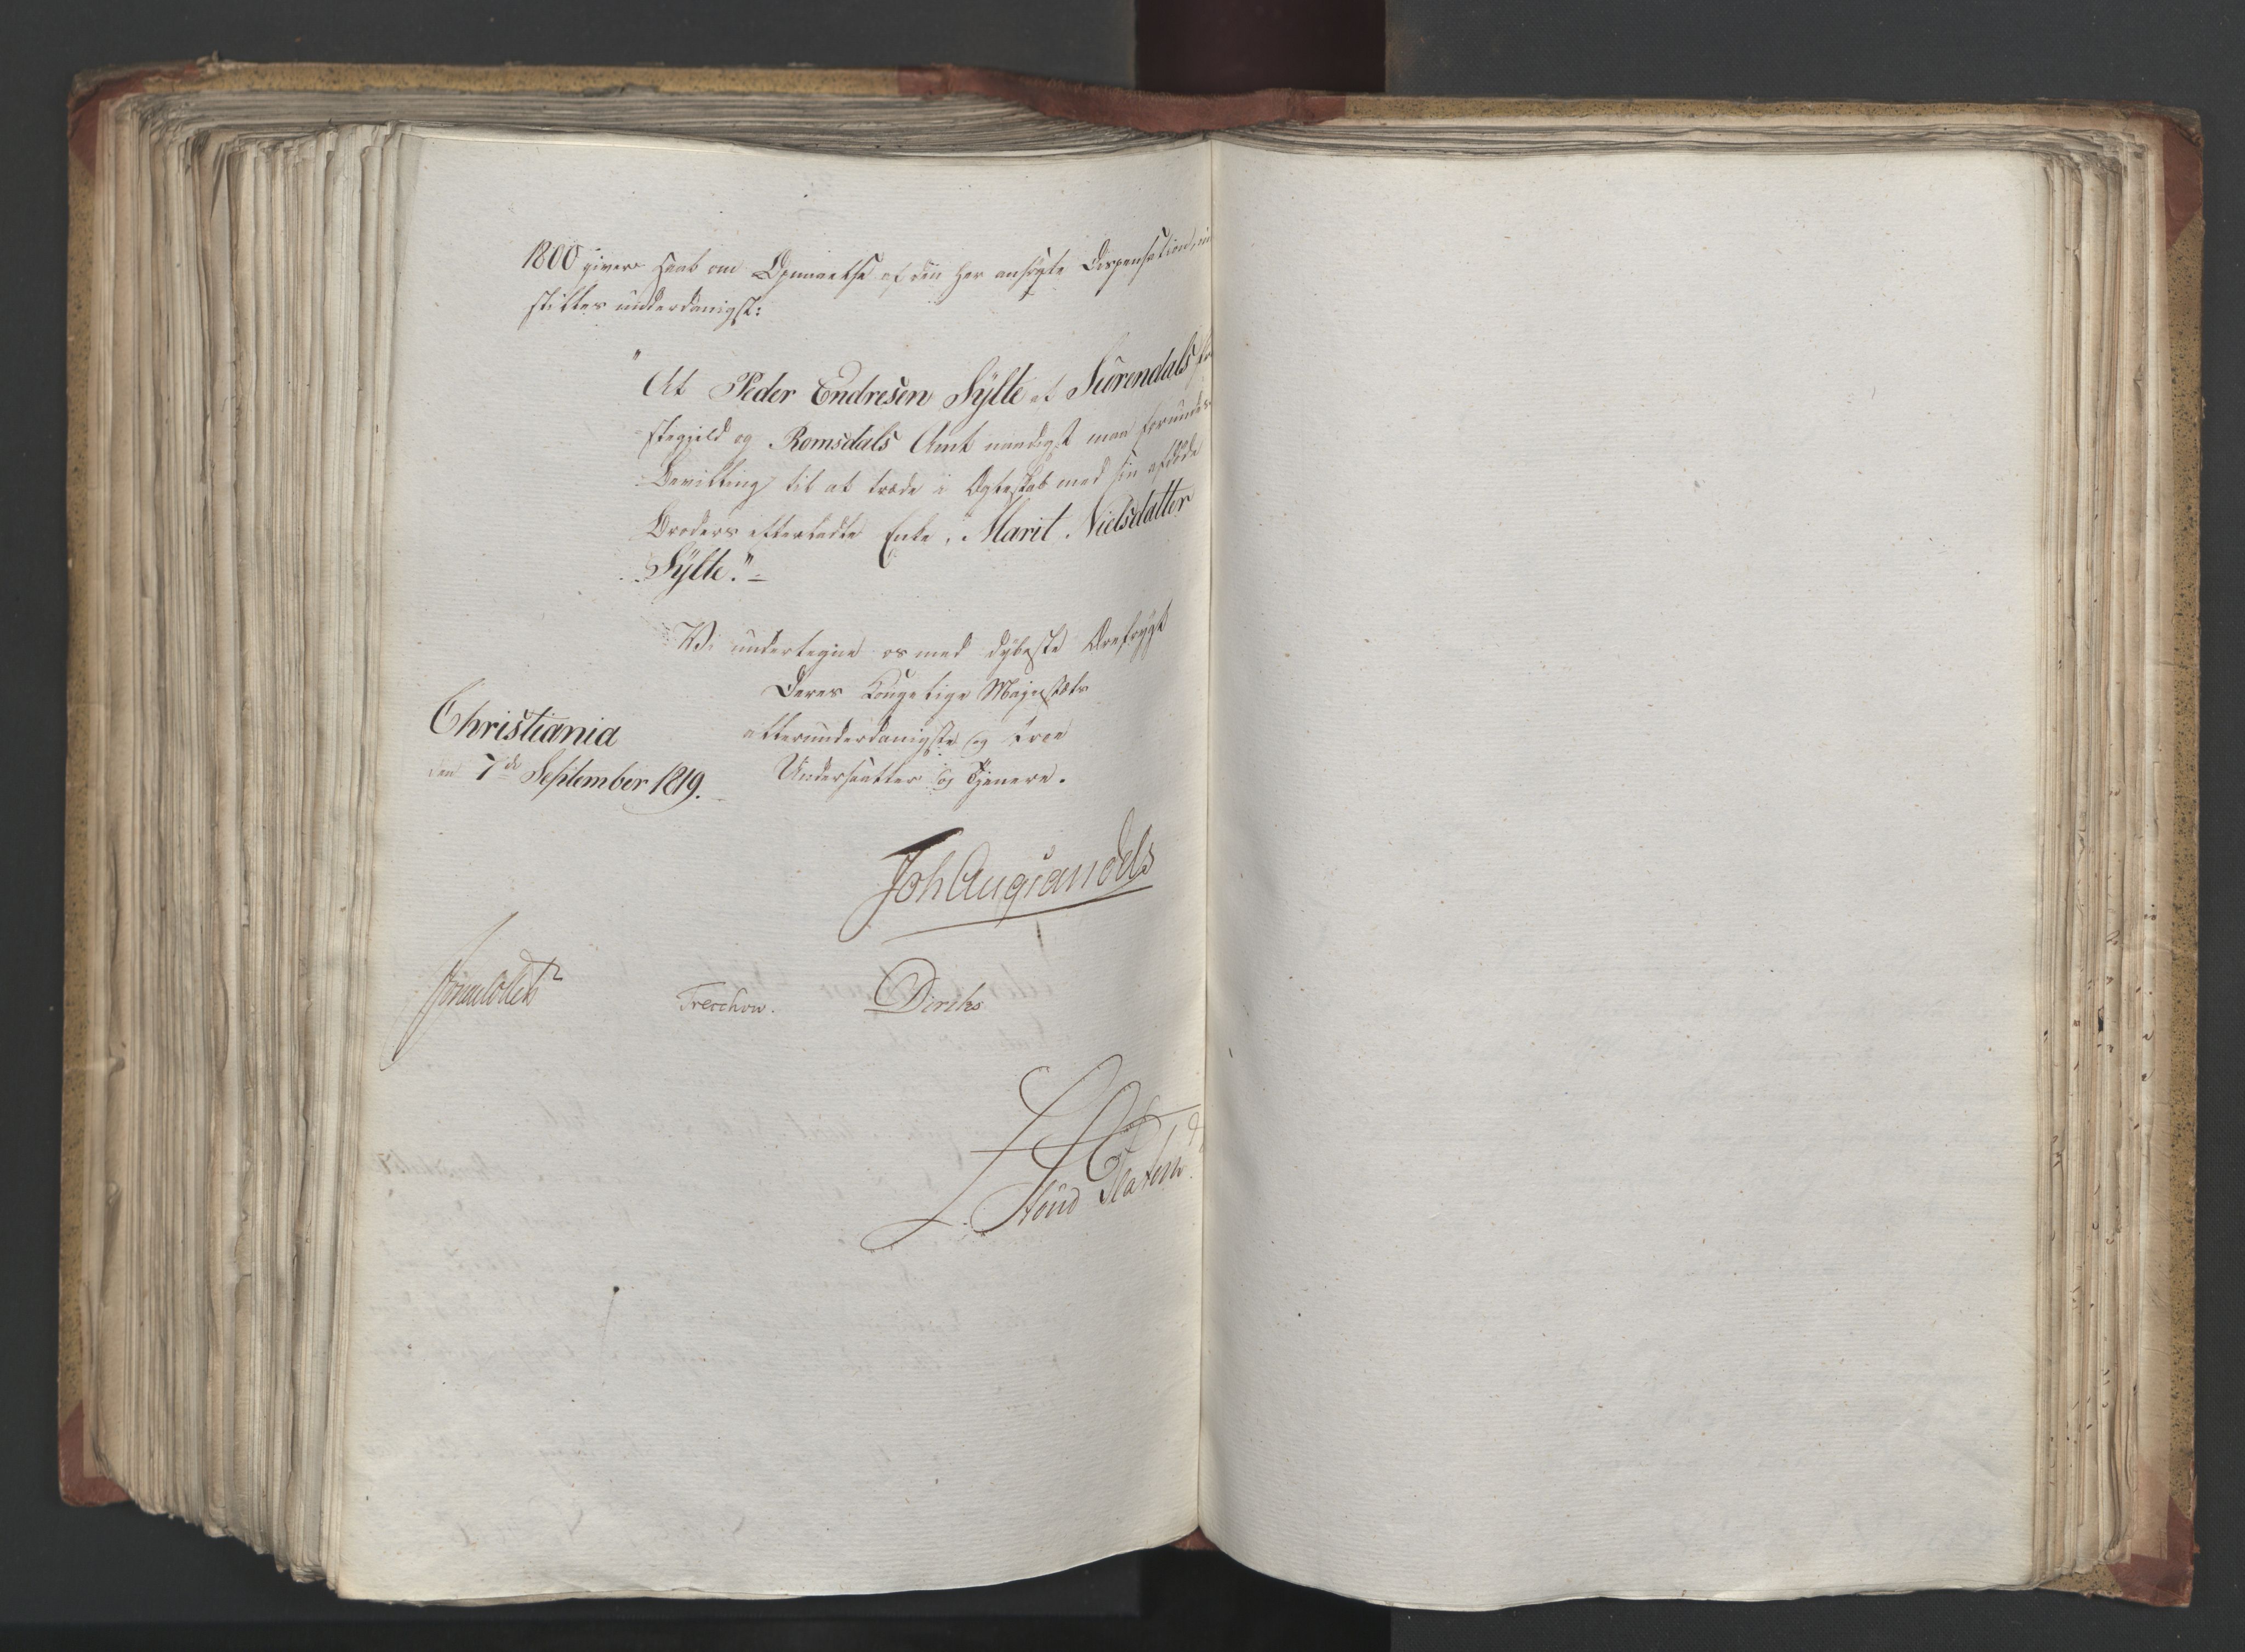 1800 giver Haab om Opnaaelse af den her ansøgte Dispensation, in
stilles underdanigst:
"At Peder Endresen Sylte af Surendals Præ
stegjeld og Romsdals Amt naadigst maa forundes
Bevilling til at træde i Ægteskab med sin afdøde
Broders efterladte Enke, Marit Nielsdatter
Sylte."
Vi undertegne os med dybeste Ærefrygt
Deres Kongelige Majestæts
allerunderdanigste og troe
Undersaatter og Tjenere.
Christiania
den 7de September 1819.
Joh Aug Sandels
Sommerhielm
Treschow.
Diriks